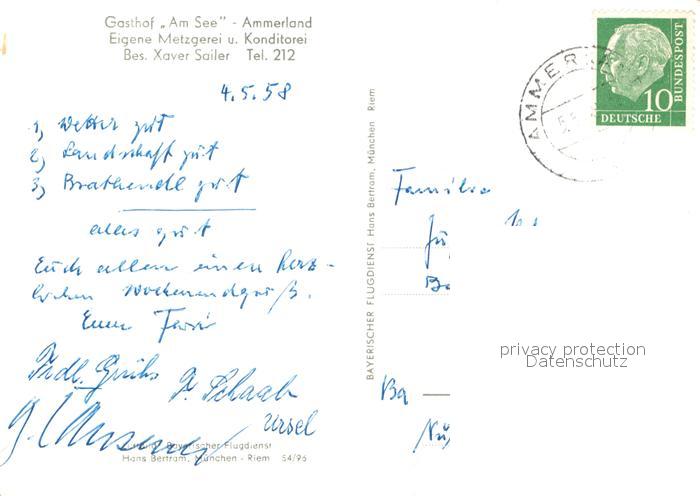 Gasthof „Am See" - Ammerland
Eigene Metzgerei u. Konditorei
Bes. Xaver Sailer Tel. 212
4.5.58
1) Wetter gut
2) Landschaft gut
3) Brathendl gut
alles gut
Euch allen einen herz-
lichen Wochenendgruß.
Euer
Frdl. Grüße F. Schaab
Ursel
Bayerischer Flugdienst
Hans Bertram, München - Riem 54/96
BAYERISCHER FLUGDIENST Hans Bertram, München Riem
AMMER
10
DEUTSCHE
BUNDESPOST
Familie
privacy protection
Datenschutz